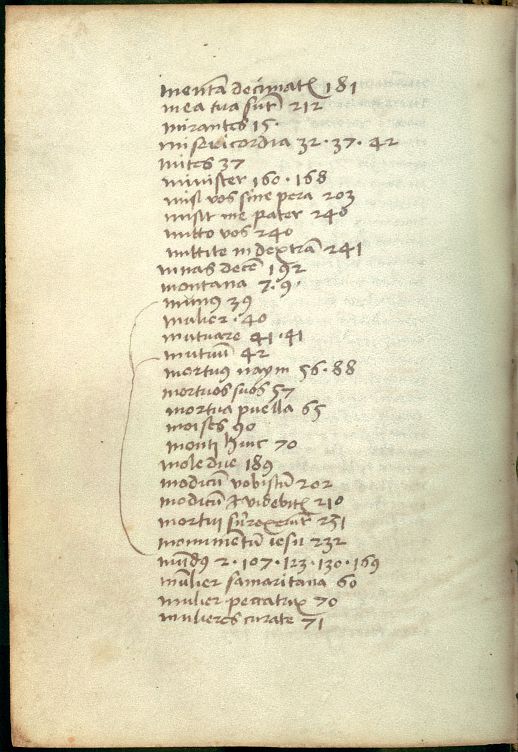 mentā decimatis 181
mea tua sūt 212
mirantes 15.
misericordia 32 · 37 · 42
mites 37
minister 160 · 168
misi vos sine pera 203
misit me pater 240
mitto vos 240
mittite in dextrā 241
mnas decē 192
montana 7 · 9 ·
munus 39
mulier · 40
mutuare 41 · 41
mutuū 42
mortuus naym 56 · 88
mortuos suos 57
mortua puella 65
moises 90
monti huic 70
mole due 189
modicū vobiscū 202
modicū et videbitis 210
mortui 251
monumentū iesu 232
mūdus 2 · 107 · 123 · 130 · 169
mulier samaritana 60
mulier peccatrix 70
mulieres curate 71